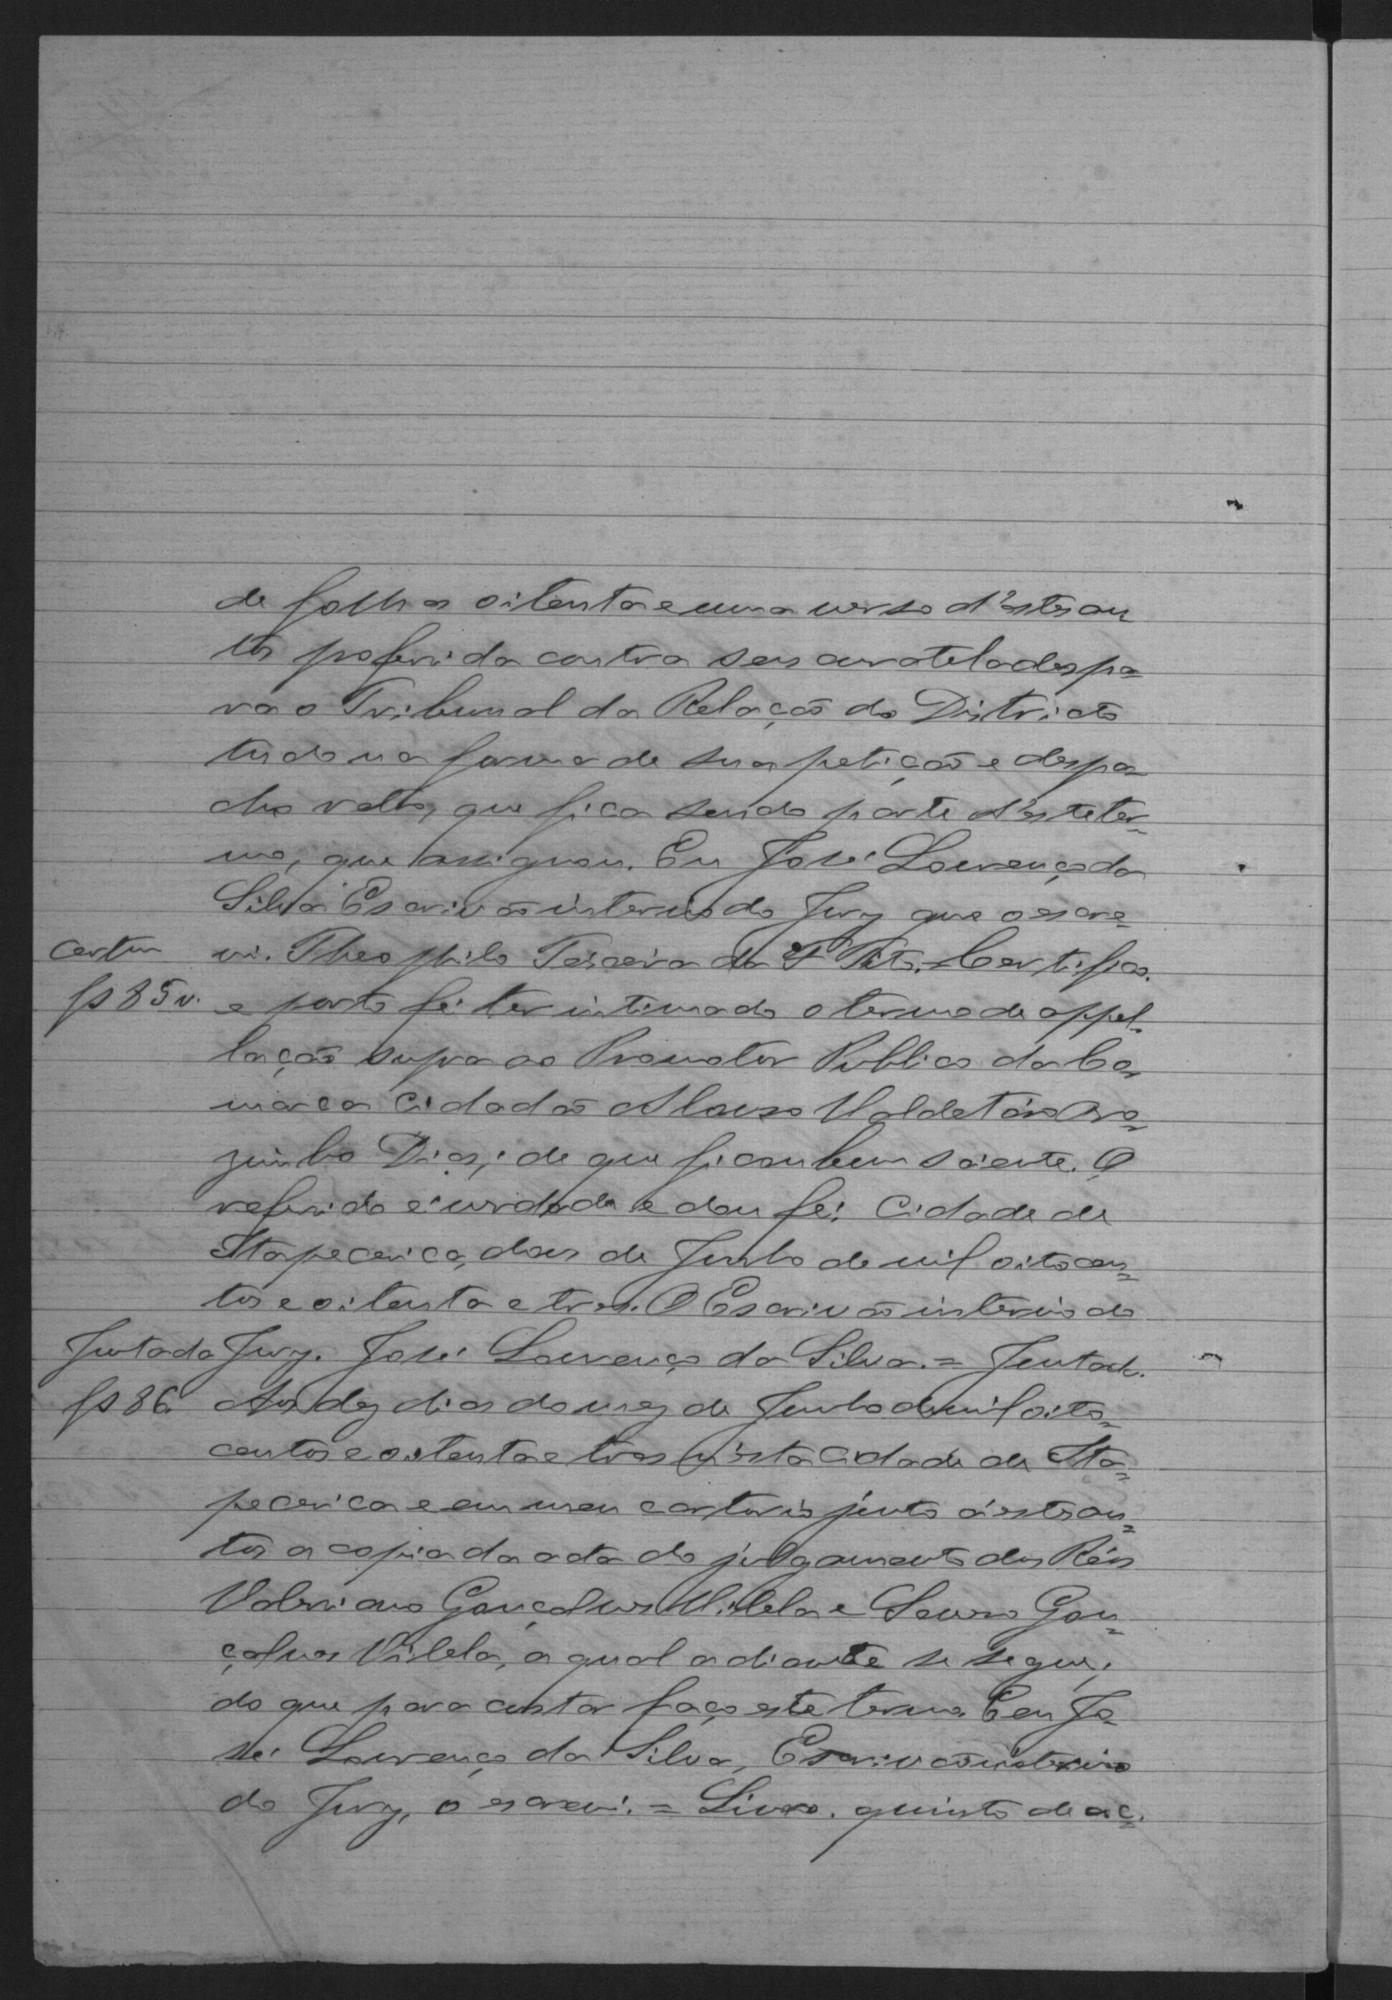 de folhas oitenta e uma verso d'estes au
tos proferida contra seus curatelados pa=
ra o Tribunal da Relação do Districto
tudo na forma de sua petição e despa=
cho retro, que fica sendo parte d'este ter=
mo, que assignou. Eu José Lourenço da
Silva Escrivão interino do Jury que o escre=
certm vi. Theophilo Teixeira da Certifico.
fs 85 v. e porto fé ter intimado o termo de appel=
lação supra ao Promotor Publico da Co=
marca Cidadão
Dias, de que ficou bem sciente. O
referido é verdade e dou fé. Cidade de
Itapecerica, dous de Junho de mil oitocen=
tos e oitenta e tres. O Escrivão interino do
Juntada Jury. José Lourenço da Silva. = Juntada.
fs 86. Aos dez dias do mez de Junho de mil oito=
centos e oitenta e tres n'esta Cidade de Ita=
pecerica e em meu cartorio junto á estes au=
tos a copia da acta do julgamento dos Réos
Valeriano Gonçalves Vilela e Lauro Gon=
çalves Vilela, a qual adiante se segue,
do que para constar faço este termo. Eu Jo=
sé Lourenço da Silva, Escrivão interino
do Jury, o escrevi. = Livro. quinto de ac=